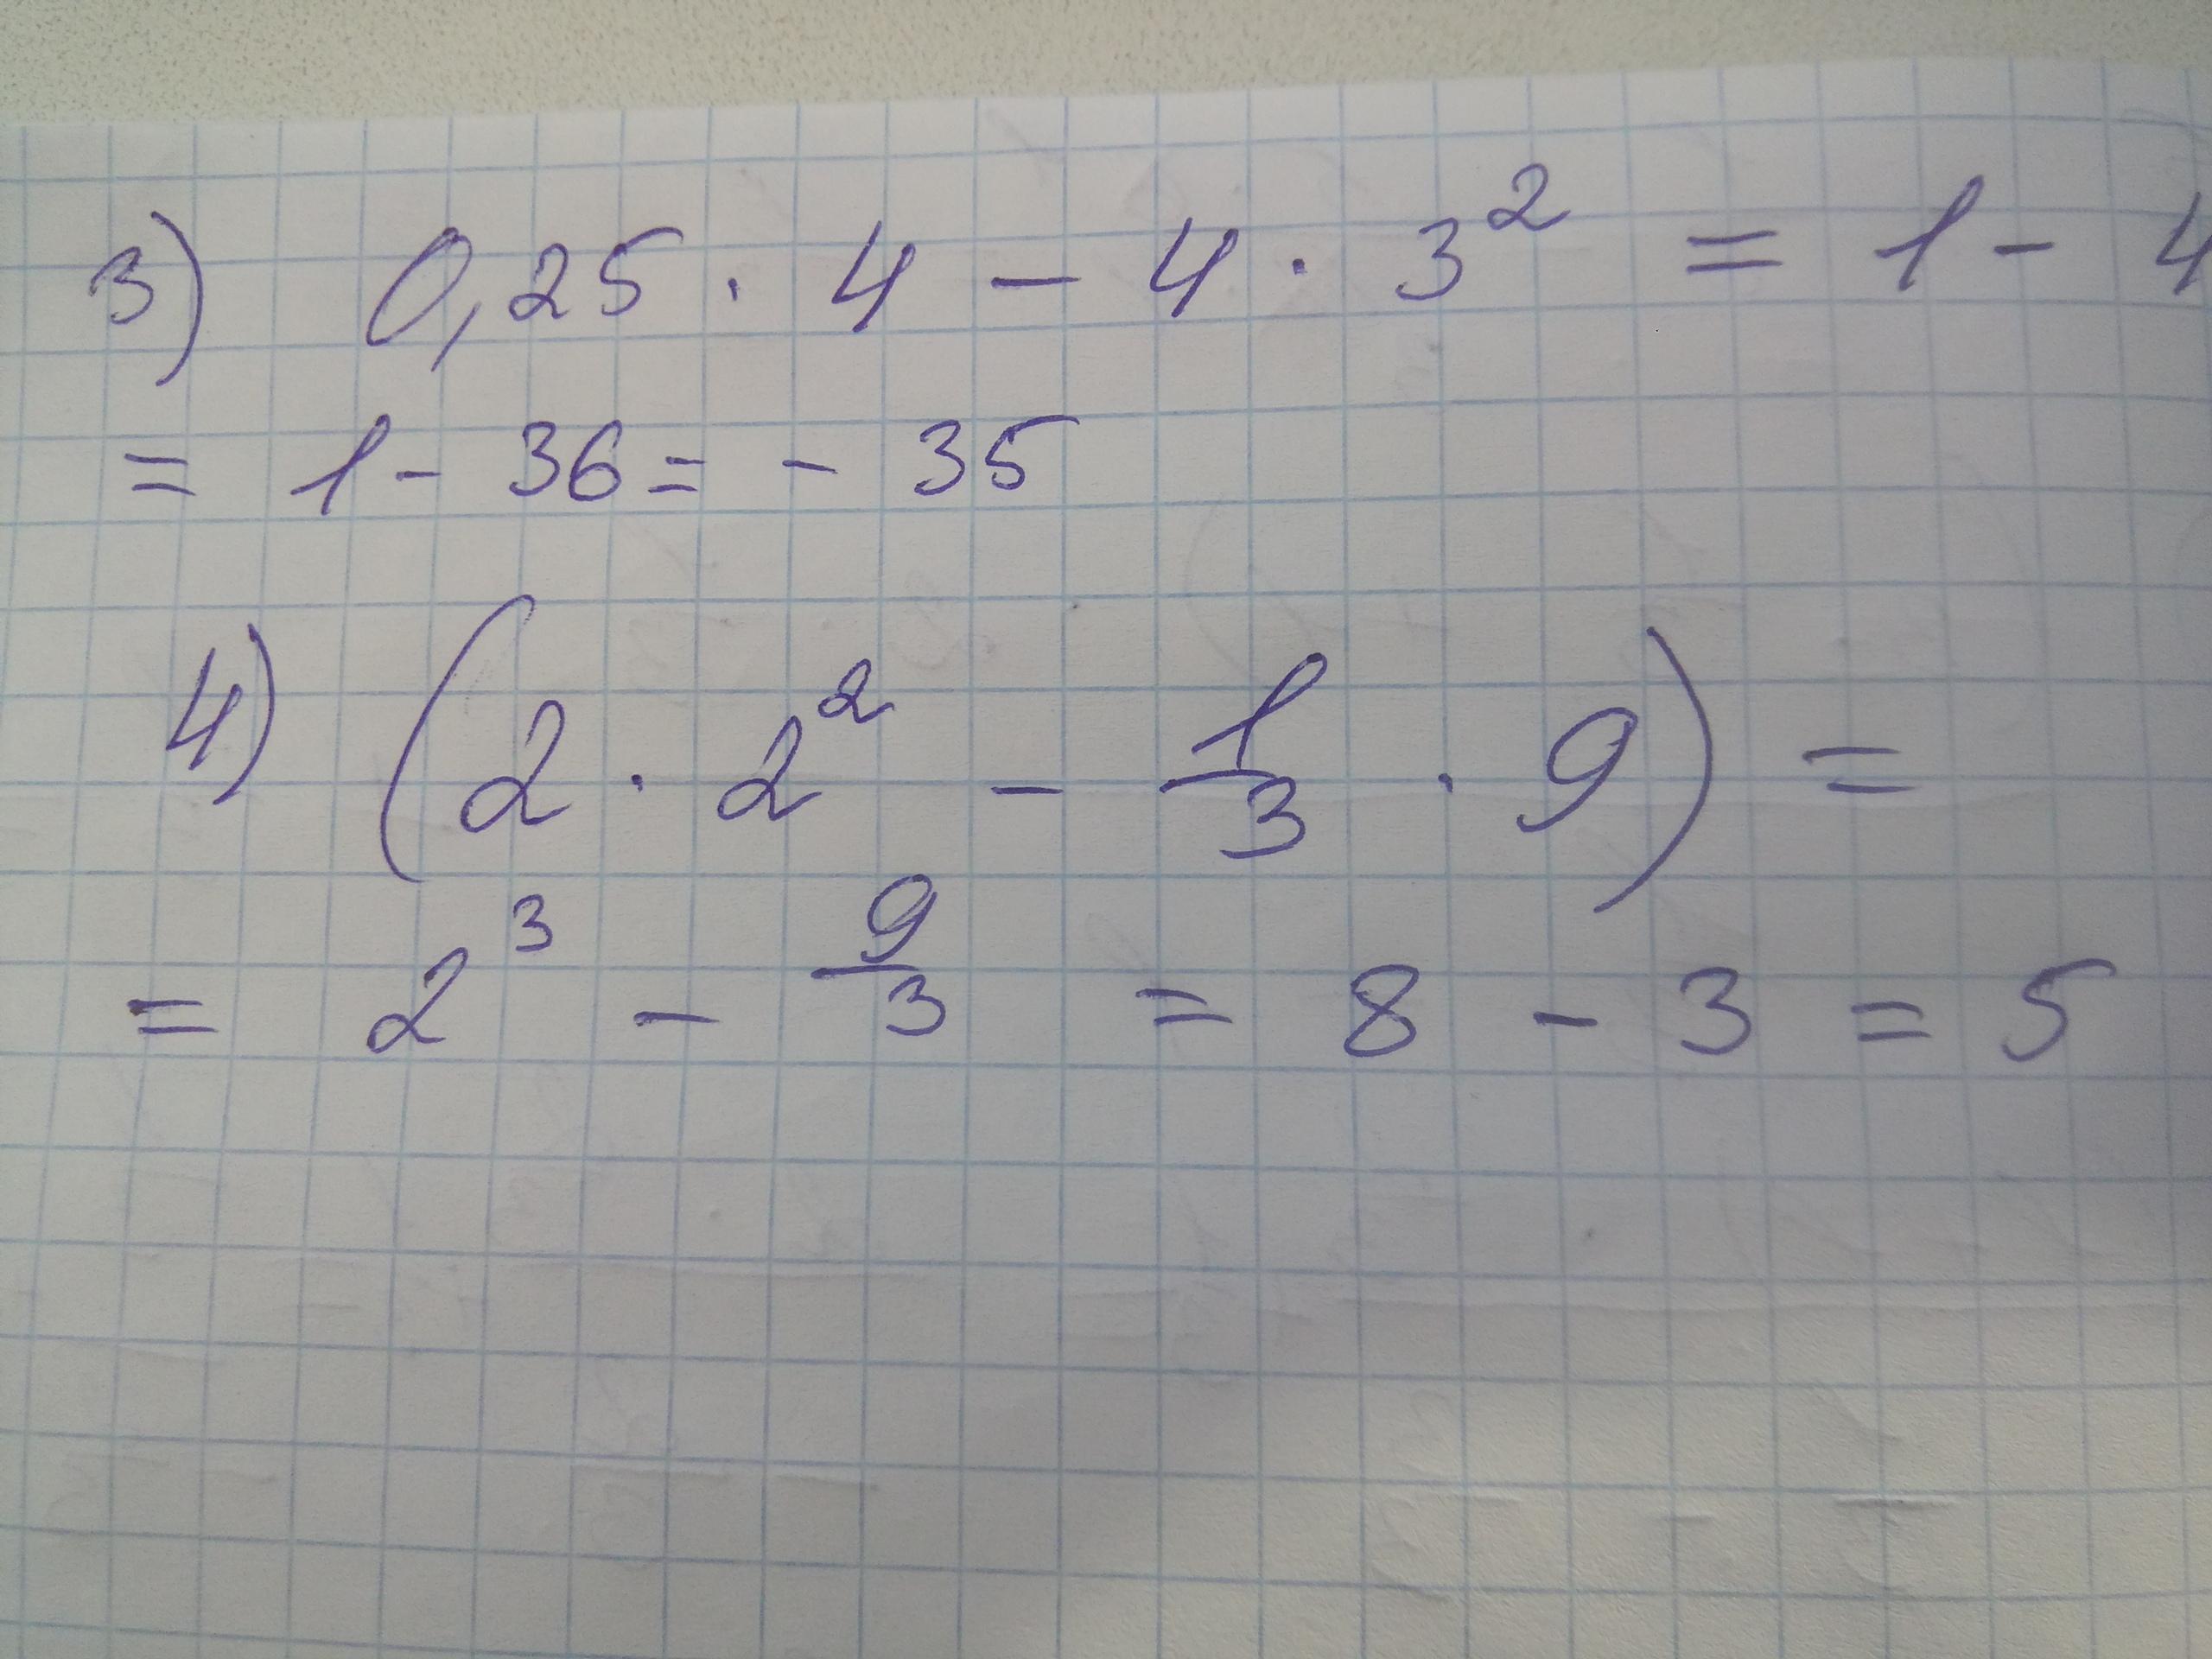 3) 0,25 · 4 − 4 · 3² = 1 − 4
= 1 − 36 = − 35
4) (2 · 2² − 1/3 · 9) =
= 2³ − 9/3 = 8 − 3 = 5